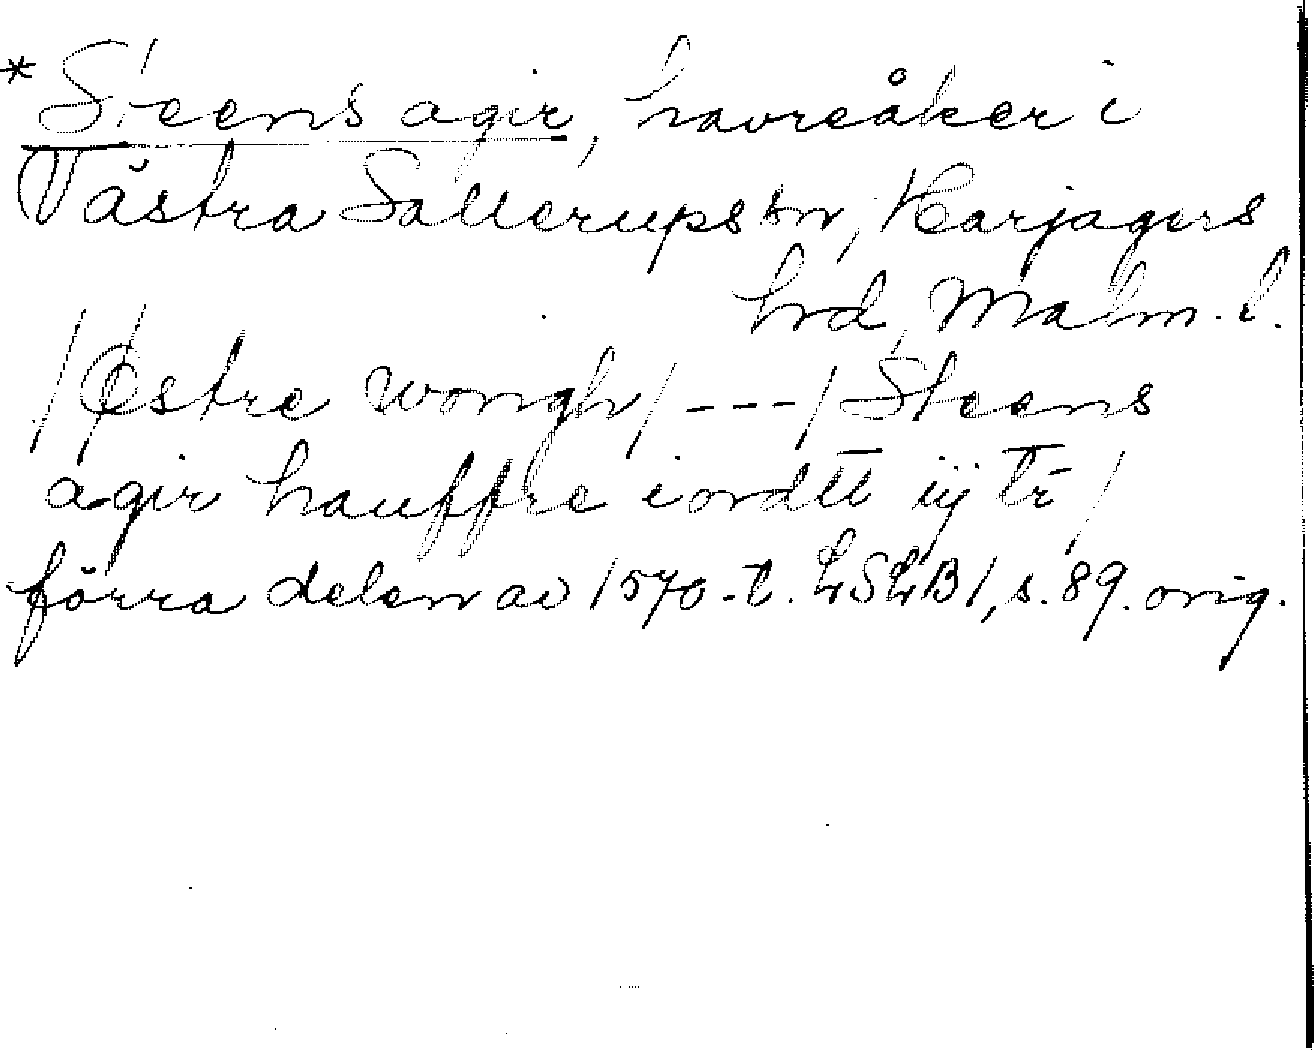 *Steens agir, havreåker i
Västra Sallerups sn, Harjagers
hrd, Malm. l.
/Østre wongh/ - - - / Steens
agir hauffre iordtt iij tr̄ /
förra delen av 1570-t. LSLB1, s. 89. orig.